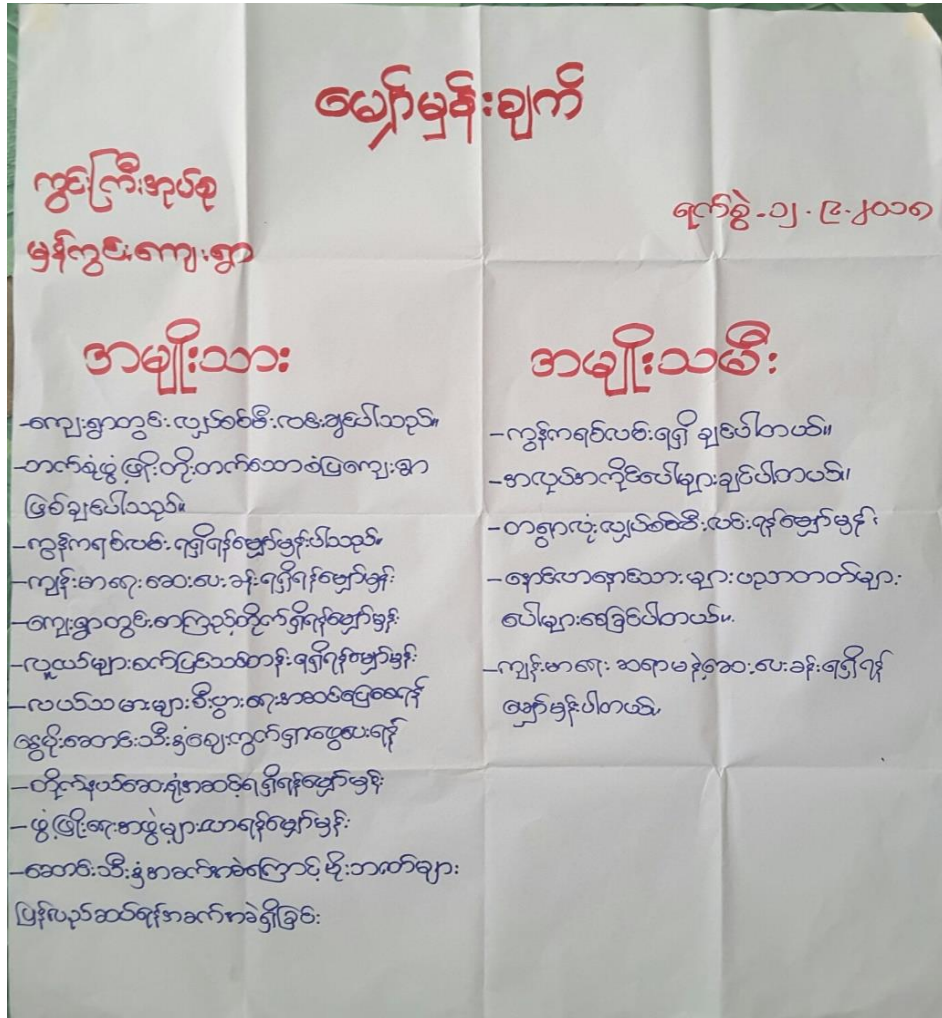 မျှော်မှန်းချက်
ကွင်းကြီးအုပ်စု
မှန်ကွင်းကျေးရွာ
ရက်စွဲ-၁၂.၉.၂၀၁၈
အမျိုးသား
-ကျေးရွာတွင်းလျှပ်စစ်မီးလင်းချင်ပါသည်။
-ဘက်စုံဖွံ့ဖြိုးတိုးတက်သောစံပြကျေးရွာ
ဖြစ်ချင်ပါသည်။
-ကွန်ကရစ်လမ်းရရှိရန်မျှော်မှန်းပါသည်။
-ကျန်းမာရေးဆေးပေးခန်းရရှိရန်မျှော်မှန်း
-ကျေးရွာတွင်းစာကြည့်တိုက်ရှိရန်မျှော်မှန်း
-လူငယ်များစက်ပြင်သင်တန်းရရှိရန်မျှော်မှန်း
-လယ်သမားများစီးပွားရေးအဆင်ပြေစေရန်
နွေမိုးဆောင်းသီးနှံဈေးကွက်ရှာဖွေပေးရန်
-တိုက်နယ်ဆေးရုံအဆင့်ရရှိရန်မျှော်မှန်း
-ဖွံ့ဖြိုးရေးအဖွဲ့များလာရန်မျှော်မှန်း
-ဆောင်းသီးနှံအခက်အခဲကြောင့်မိုးဘဏ်များ
ပြန်လည်ဆပ်ရန်အခက်အခဲရှိခြင်း
အမျိုးသမီး
-ကွန်ကရစ်လမ်းရရှိချင်ပါတယ်။
-အလုပ်အကိုင်ပေါများချင်ပါတယ်။
-တရွာလုံးလျှပ်စစ်မီးလင်းရန်မျှော်မှန်း
-နောင်လာနောင်သားများပညာတတ်များ
ပေါများစေခြင်ပါတယ်။
-ကျန်းမာရေးဆရာမနဲ့ဆေးပေးခန်းရရှိရန်
မျှော်မှန်းပါတယ်။